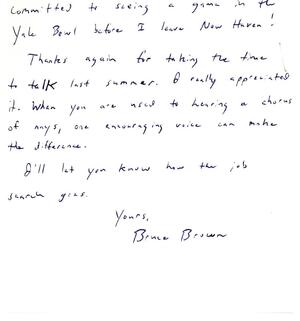 committed to seeing a game in the
Yale Bowl before I leave New Haven!
Thanks again for taking the time
to talk last summer. I really appreciated
it. When you are used to hearing a chorus
of nays, one encouraging voice can make
the difference.
I'll let you know how the job
search goes.
Yours,
Bruce Brown